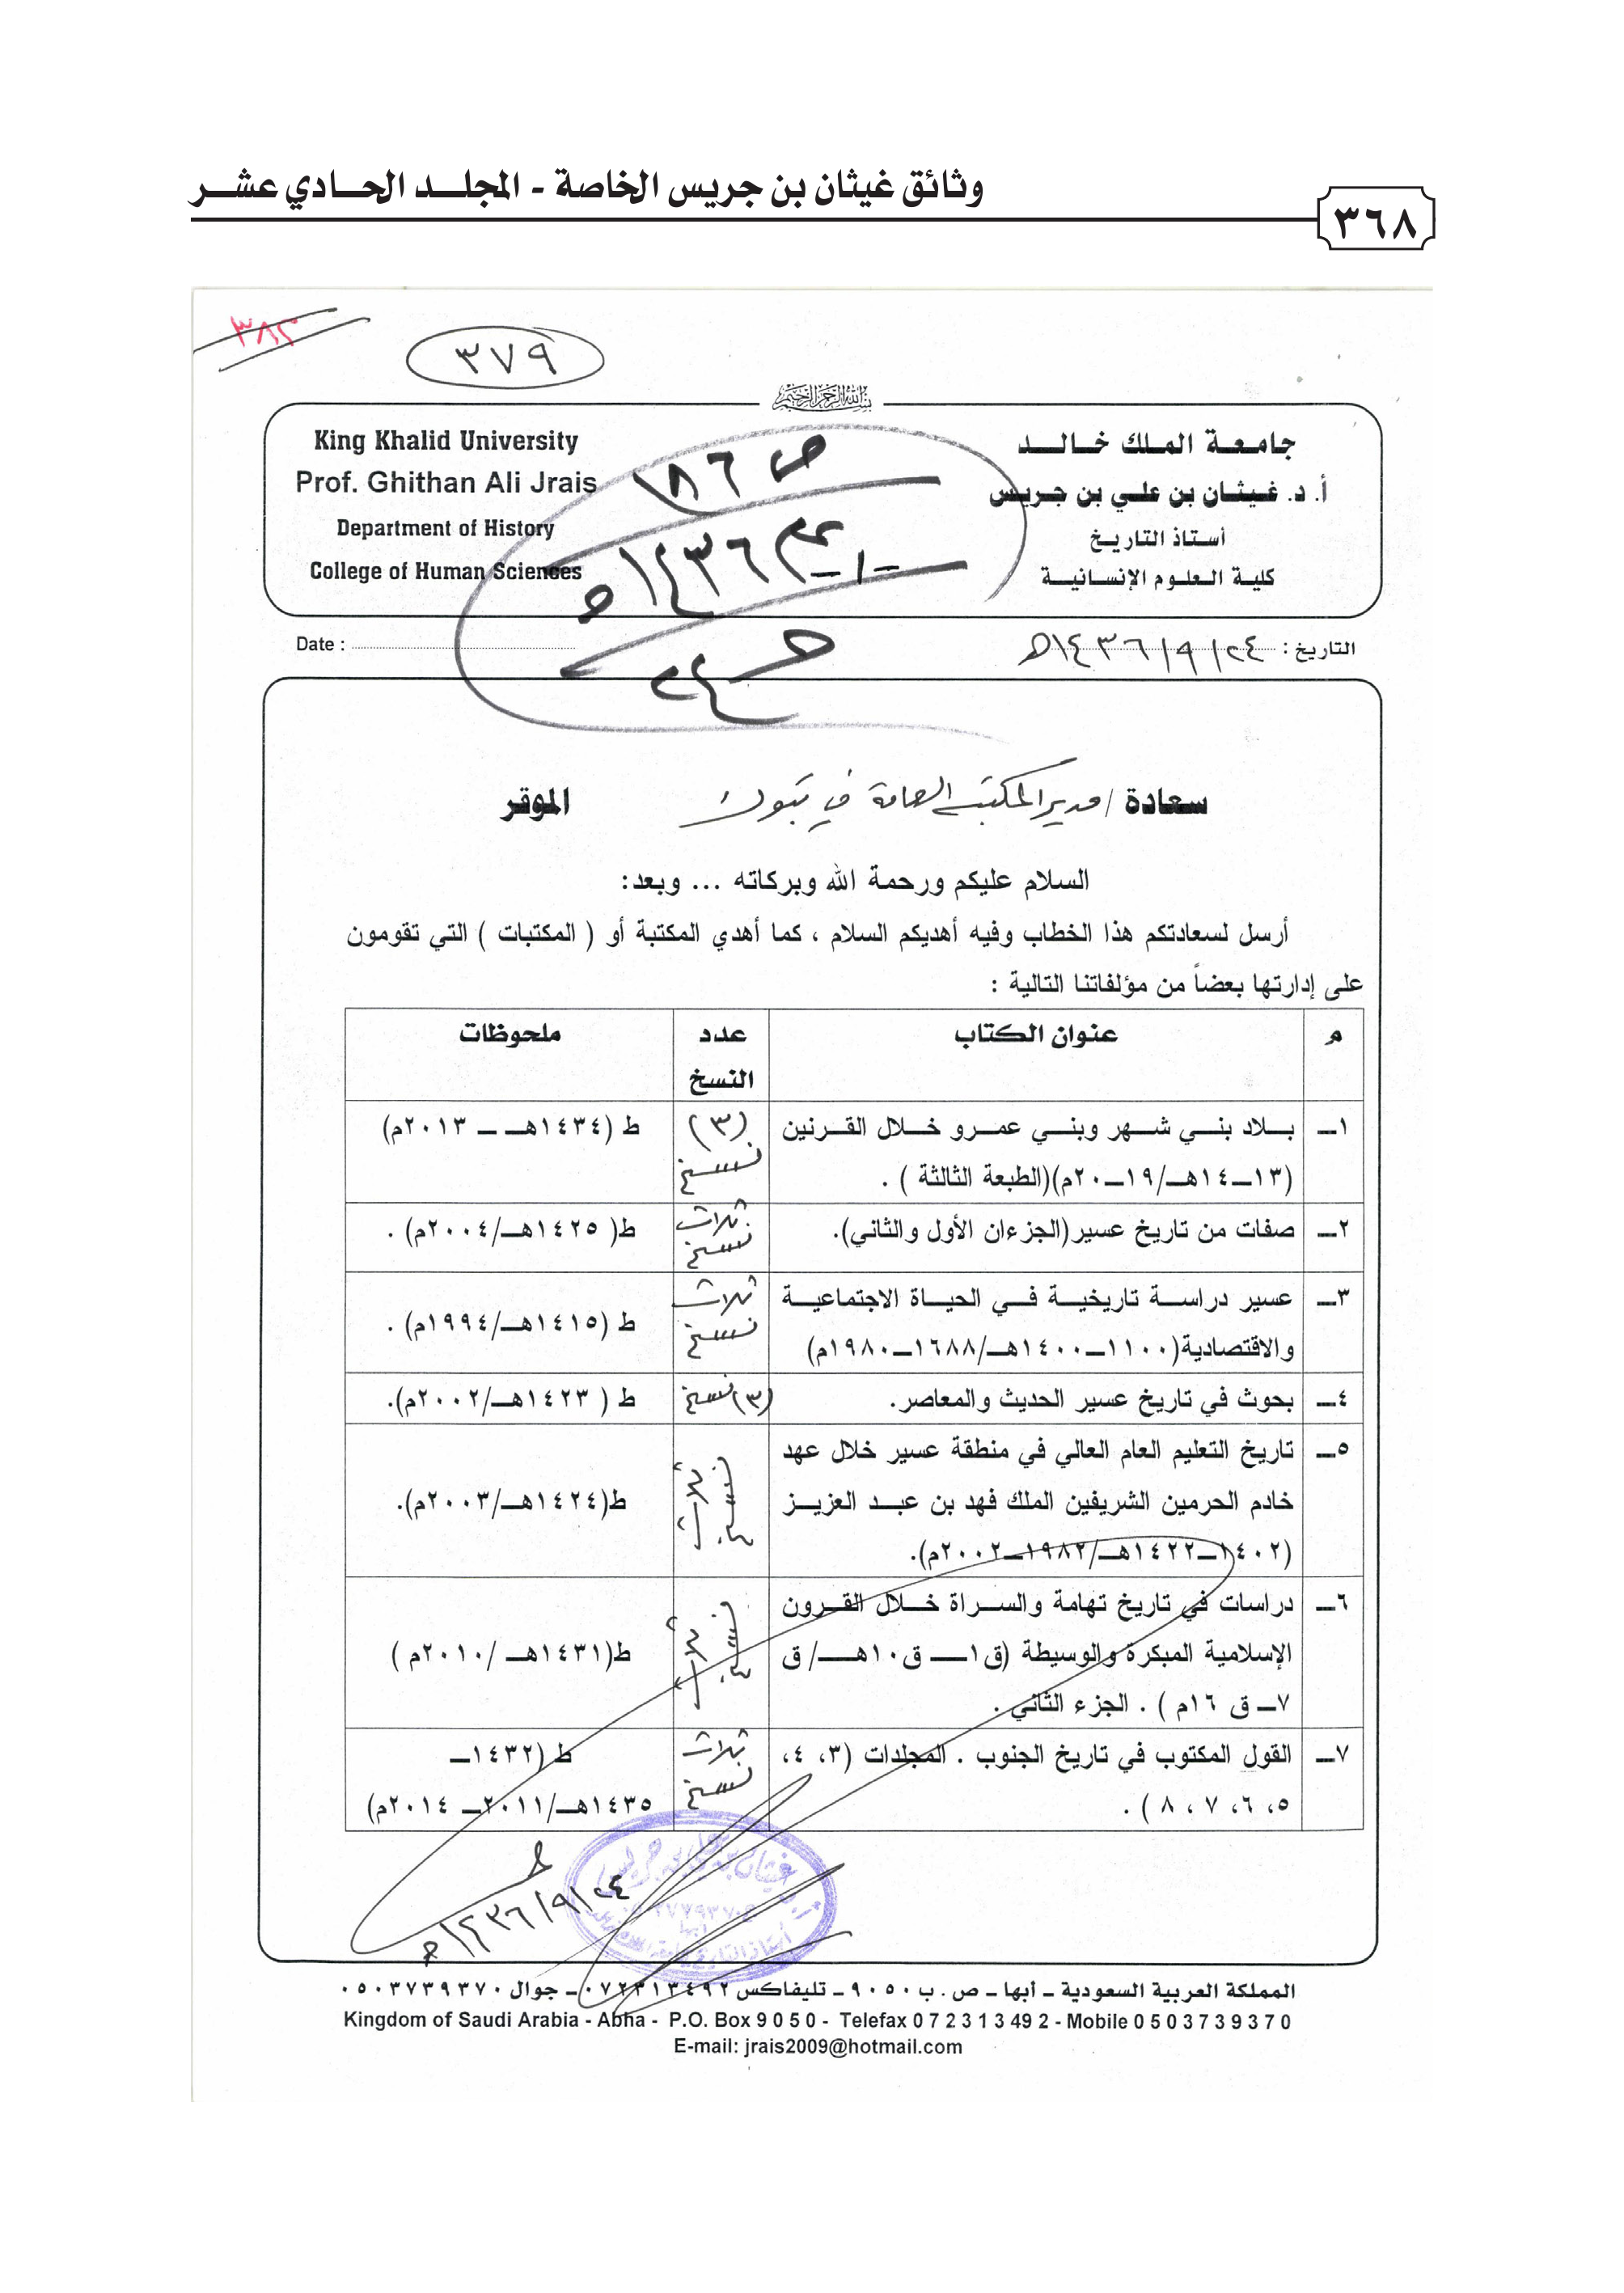 وثائق غيثان بن جريس الخاصة - المجلد الحادي عشر
٣٦٨
٣٨٢
٣٧٩
بسم الله الرحمن الرحيم
جامعة الملك خالد
أ. د. غيثان بن علي بن جريس
أستاذ التاريخ
كلية العلوم الإنسانية
King Khalid University
Prof. Ghithan Ali Jrais
Department of History
College of Human Sciences
ص ١٨٦
١٤٣٦هـ
التاريخ : ٢٤/٩/١٤٣٦هـ
Date :
سعادة / مدير المكتبة العامة في تبوك الموقر
السلام عليكم ورحمة الله وبركاته ... وبعد:
أرسل لسعادتكم هذا الخطاب وفيه أهديكم السلام ، كما أهدي المكتبة أو ( المكتبات ) التي تقومون
على إدارتها بعضاً من مؤلفاتنا التالية :
م عنوان الكتاب عدد النسخ ملحوظات
١ـ بلاد بني شهر وبني عمرو خلال القرنين (٣) نسخ ط (١٤٣٤هـ ـ ٢٠١٣م)
(١٣ـ١٤هـ/١٩ـ٢٠م)(الطبعة الثالثة ) .
٢ـ صفات من تاريخ عسير(الجزءان الأول والثاني). ثلاث نسخ ط( ١٤٢٥هـ/٢٠٠٤م) .
٣ـ عسير دراسة تاريخية في الحياة الاجتماعية ثلاث نسخ ط (١٤١٥هـ/١٩٩٤م) .
والاقتصادية(١١٠٠ـ١٤٠٠هـ/١٦٨٨ـ١٩٨٠م)
٤ـ بحوث في تاريخ عسير الحديث والمعاصر. (٣) نسخ ط ( ١٤٢٣هـ/٢٠٠٢م).
٥ـ تاريخ التعليم العام العالي في منطقة عسير خلال عهد ثلاث نسخ ط(١٤٢٤هـ/٢٠٠٣م).
خادم الحرمين الشريفين الملك فهد بن عبد العزيز
(١٤٠٢ـ١٤٢٢هـ/١٩٨٢ـ٢٠٠٢م).
٦ـ دراسات في تاريخ تهامة والسراة خلال القرون ثلاث نسخ ط(١٤٣١هـ /٢٠١٠م )
الإسلامية المبكرة والوسيطة (ق١ـ ق١٠هـ/ ق
٧ـ ق ١٦م ) . الجزء الثاني .
٧ـ القول المكتوب في تاريخ الجنوب . المجلدات (٣، ٤، ثلاث نسخ ط (١٤٣٢ـ
٥، ٦، ٧ ، ٨ ) . ١٤٣٥هـ/٢٠١١ـ ٢٠١٤م)
٢٤/٩/١٤٣٦هـ
المملكة العربية السعودية ـ أبها ـ ص . ب ٩٠٥٠ ـ تليفاكس ٠٧٢٣١٣٤٩٢ ـ جوال ٠٥٠٣٧٣٩٣٧٠
Kingdom of Saudi Arabia - Abha - P.O. Box 9 0 5 0 - Telefax 0 7 2 3 1 3 4 9 2 - Mobile 0 5 0 3 7 3 9 3 7 0
E-mail: jrais2009@hotmail.com